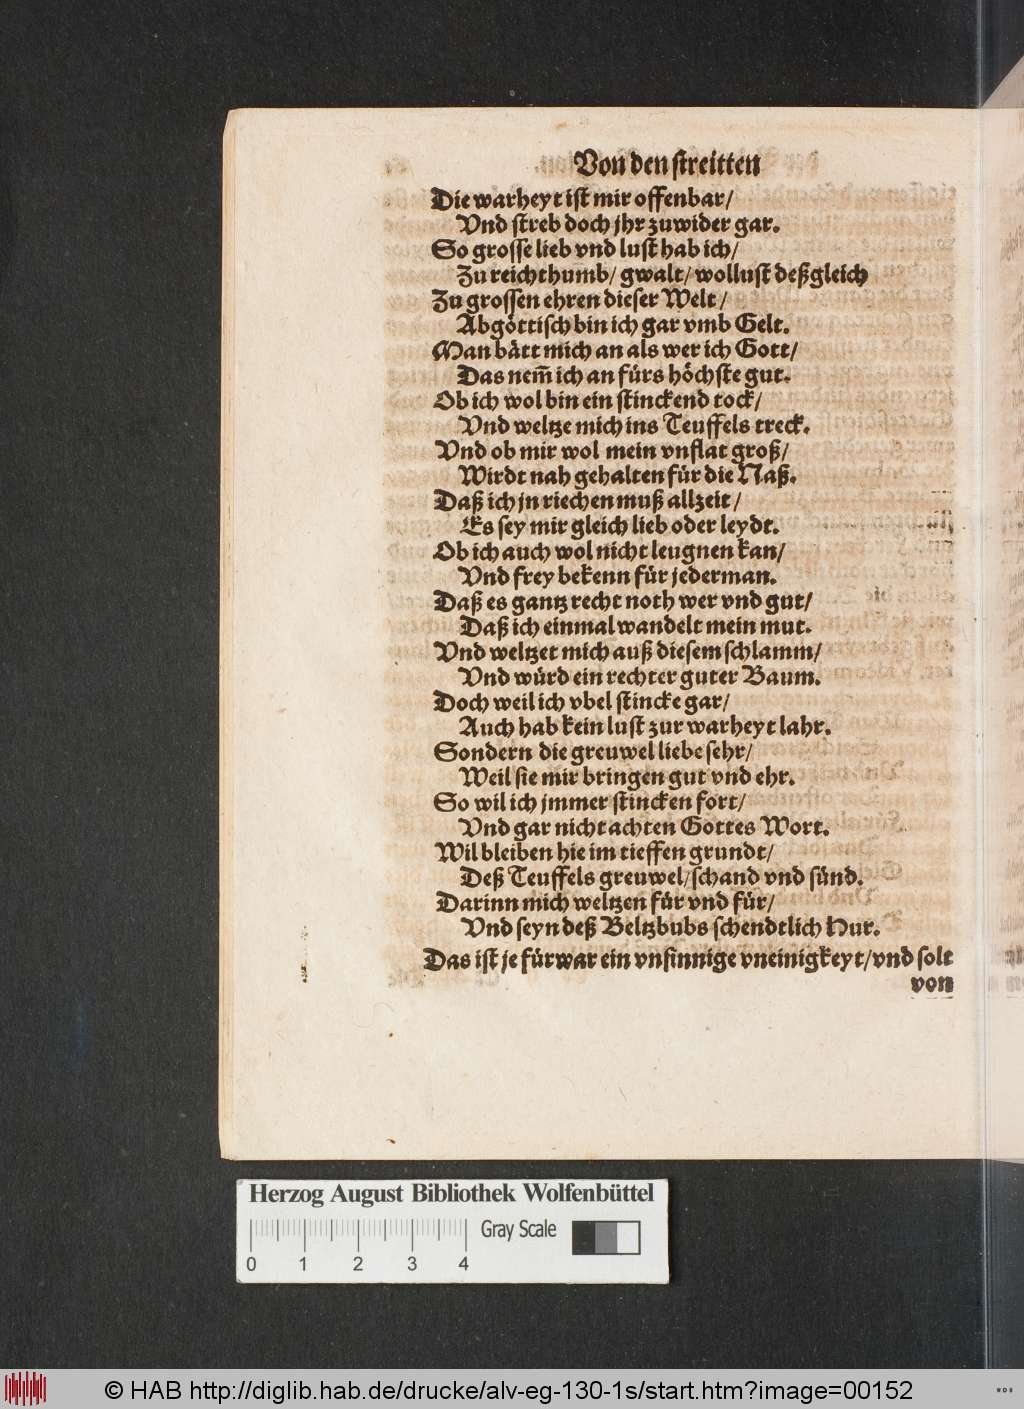 Von den streitten
Die warheyt ist mir offenbar/
Vnd streb doch jhr zuwider gar.
So grosse lieb vnd lust hab ich/
Zu reichthumb/ gwalt/ wollust deßgleich
Zu grossen ehren dieser Welt/
Abgöttisch bin ich gar vmb Gelt.
Man bätt mich an als wer ich Gott/
Das nem̃ ich an fürs höchste gut.
Ob ich wol bin ein stinckend rock/
Vnd weltze mich ins Teuffels treck.
Vnd ob mir wol mein vnflat groß/
Wirdt nah gehalten für die Naß.
Daß ich jn riechen muß allzeit/
Es sey mir gleich lieb oder leydt.
Ob ich auch wol nicht leugnen kan/
Vnd frey bekenn für jederman.
Daß es gantz recht noth wer vnd gut/
Daß ich einmal wandelt mein mut.
Vnd weltzet mich auß diesem schlamm/
Vnd würd ein rechter guter Baum.
Doch weil ich vbel stincke gar/
Auch hab kein lust zur warheyt lahr.
Sondern die greuwel liebe sehr/
Weil sie mir bringen gut vnd ehr.
So wil ich jmmer stincken fort/
Vnd gar nicht achten Gottes Wort.
Wil bleiben hie im tieffen grundt/
Deß Teuffels greuwel/schand vnd sünd.
Darinn mich weltzen für vnd für/
Vnd seyn deß Beltzbubs schendtlich Hur.
Das ist je fürwar ein vnsinnige vneinigkeyt/vnd solt
von
Herzog August Bibliothek Wolfenbüttel
Gray Scale
0 1 2 3 4
© HAB http://diglib.hab.de/drucke/alv-eg-130-1s/start.htm?image=00152